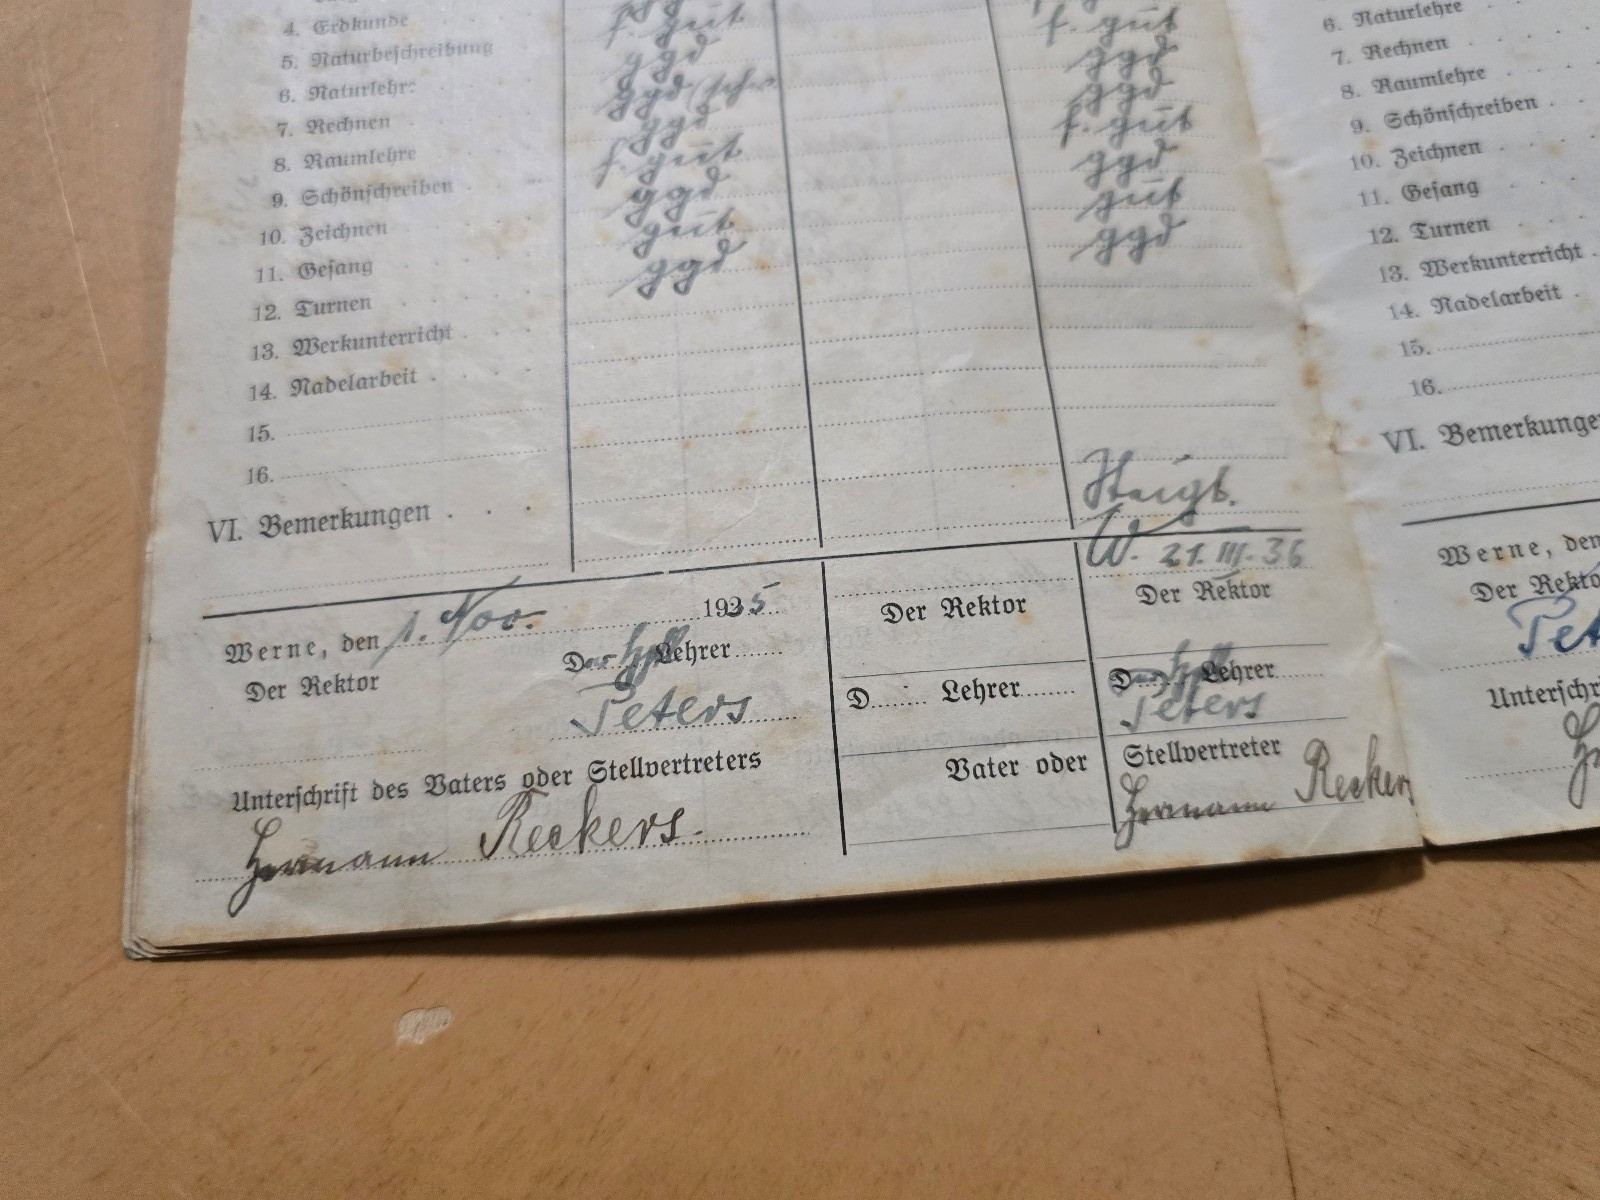 4. Erdkunde . . . f. gut f. gut
5. Naturbeschreibung ggd ggd
6. Naturlehre ggd ggd
7. Rechnen . . . ggd f. gut
8. Raumlehre . . . f. gut ggd
9. Schönschreiben . . . ggd gut
10. Zeichnen . . . gut ggd
11. Gesang . . . ggd
12. Turnen . . .
13. Werkunterricht . . .
14. Nadelarbeit . . .
15.
16.
VI. Bemerkungen . . .
Steigt.
Werne, den 1. Nov. 1935
W. 21. III. 36
Der Rektor
Der Lehrer
Peters
Unterschrift des Vaters oder Stellvertreters
Hermann Reckers.
Der Rektor
D Lehrer
Vater oder
Der Rektor
D Lehrer
Peters
Stellvertreter
Hermann Reckers
6. Naturlehre
7. Rechnen . . .
8. Raumlehre . . .
9. Schönschreiben .
10. Zeichnen . . .
11. Gesang . . .
12. Turnen . . .
13. Werkunterricht .
14. Nadelarbeit .
15.
16.
VI. Bemerkunge
Werne, den
Der Rekto
Pet
Unterschri